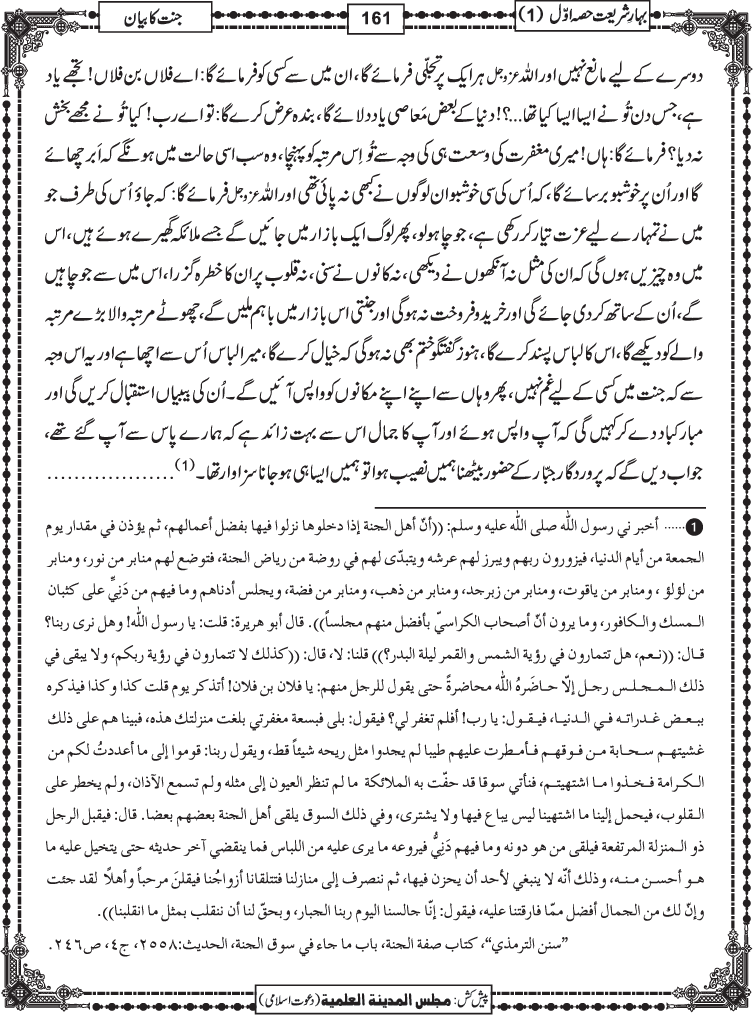 بہارِ شریعت حصہ اوّل (1)
161
جنت کا بیان
دوسرے کے لیے مانع نہیں اور اللہ عزوجل ہر ایک پر تجلّی فرمائے گا، ان میں سے کسی کو فرمائے گا: اے فلاں بن فلاں! تجھے یاد
ہے، جس دن تُو نے ایسا ایسا کیا تھا...؟! دنیا کے بعض مَعاصی یاد دلائے گا، بندہ عرض کرے گا: تو اے رب! کیا تُو نے مجھے بخش
نہ دیا؟ فرمائے گا: ہاں! میری مغفرت کی وسعت ہی کی وجہ سے تُو اِس مرتبہ کو پہنچا، وہ سب اسی حالت میں ہونگے کہ اَبر چھائے
گا اور اُن پر خوشبو برسائے گا، کہ اُس کی سی خوشبو ان لوگوں نے کبھی نہ پائی تھی اور اللہ عزوجل فرمائے گا: کہ جاؤ اُس کی طرف جو
میں نے تمہارے لیے عزت تیار کر رکھی ہے، جو چاہو لو، پھر لوگ ایک بازار میں جائیں گے جسے ملائکہ گھیرے ہوئے ہیں، اس
میں وہ چیزیں ہوں گی کہ ان کی مثل نہ آنکھوں نے دیکھی، نہ کانوں نے سنی، نہ قلوب پر ان کا خطرہ گزرا، اس میں سے جو چاہیں
گے، اُن کے ساتھ کر دی جائے گی اور خرید و فروخت نہ ہوگی اور جنتی اس بازار میں باہم ملیں گے، چھوٹے مرتبہ والا بڑے مرتبہ
والے کو دیکھے گا، اس کا لباس پسند کرے گا، ہنوز گفتگو ختم بھی نہ ہوگی کہ خیال کرے گا، میرا لباس اُس سے اچھا ہے اور یہ اس وجہ
سے کہ جنت میں کسی کے لیے غم نہیں، پھر وہاں سے اپنے اپنے مکانوں کو واپس آئیں گے۔ اُن کی بیبیاں استقبال کریں گی اور
مبارکباد دے کر کہیں گی کہ آپ واپس ہوئے اور آپ کا جمال اس سے بہت زائد ہے کہ ہمارے پاس سے آپ گئے تھے،
جواب دیں گے کہ پروردگار جبّار کے حضور بیٹھنا ہمیں نصیب ہوا تو ہمیں ایسا ہی ہو جانا سزاوار تھا۔ (1)....................
1...... أخبر ني رسول اللّٰه صلى اللّٰه عليه وسلم: ((أنّ أهل الجنة إذا دخلوها نزلوا فيها بفضل أعمالهم، ثم يؤذن في مقدار يوم
الجمعة من أيام الدنيا، فيزورون ربهم ويبرز لهم عرشه ويتبدّى لهم في روضة من رياض الجنة، فتوضع لهم منابر من نور، ومنابر
من لؤلؤ، ومنابر من ياقوت، ومنابر من زبرجد، ومنابر من ذهب، ومنابر من فضة، ويجلس أدناهم وما فيهم من دَنِيٍّ على كثبان
المسك والكافور، وما يرون أنّ أصحاب الكراسيّ بأفضل منهم مجلساً)). قال أبو هريرة: قلت: يا رسول اللّٰه! وهل نرى ربنا؟
قال: ((نعم، هل تتمارون في رؤية الشمس والقمر ليلة البدر؟)) قلنا: لا، قال: ((كذلك لا تتمارون في رؤية ربكم، ولا يبقى في
ذلك المجلس رجل إلاّ حاضَرَهُ اللّٰه محاضرةً حتى يقول للرجل منهم: يا فلان بن فلان! أتذكر يوم قلت كذا وكذا فيذكره
ببعض غدراته في الدنيا، فيقول: يا رب! أفلم تغفر لي؟ فيقول: بلى فبسعة مغفرتي بلغت منزلتك هذه، فبينا هم على ذلك
غشيتهم سحابة من فوقهم فأمطرت عليهم طيبا لم يجدوا مثل ريحه شيئاً قط، ويقول ربنا: قوموا إلى ما أعددتُ لكم من
الكرامة فخذوا ما اشتهيتم، فنأتي سوقا قد حفّت به الملائكة ما لم تنظر العيون إلى مثله ولم تسمع الآذان، ولم يخطر على
القلوب، فيحمل إلينا ما اشتهينا ليس يباع فيها ولا يشترى، وفي ذلك السوق يلقى أهل الجنة بعضهم بعضا. قال: فيقبل الرجل
ذو المنزلة المرتفعة فيلقى من هو دونه وما فيهم دَنِيٌّ فيروعه ما يرى عليه من اللباس فما ينقضي آخر حديثه حتى يتخيل عليه ما
هو أحسن منه، وذلك أنّه لا ينبغي لأحد أن يحزن فيها، ثم ننصرف إلى منازلنا فتتلقانا أزواجُنا فيقلنَ مرحباً وأهلًا لقد جئت
وإنّ لك من الجمال أفضل ممّا فارقتنا عليه، فيقول: إنّا جالسنا اليوم ربنا الجبار، وبحقّ لنا أن ننقلب بمثل ما انقلبنا)).
”سنن الترمذي“، كتاب صفة الجنة، باب ما جاء في سوق الجنة، الحديث:۲۵۵۸، ج٤، ص۲٤٦.
پیش کش: مجلس المدينة العلمية (دعوتِ اسلامی)